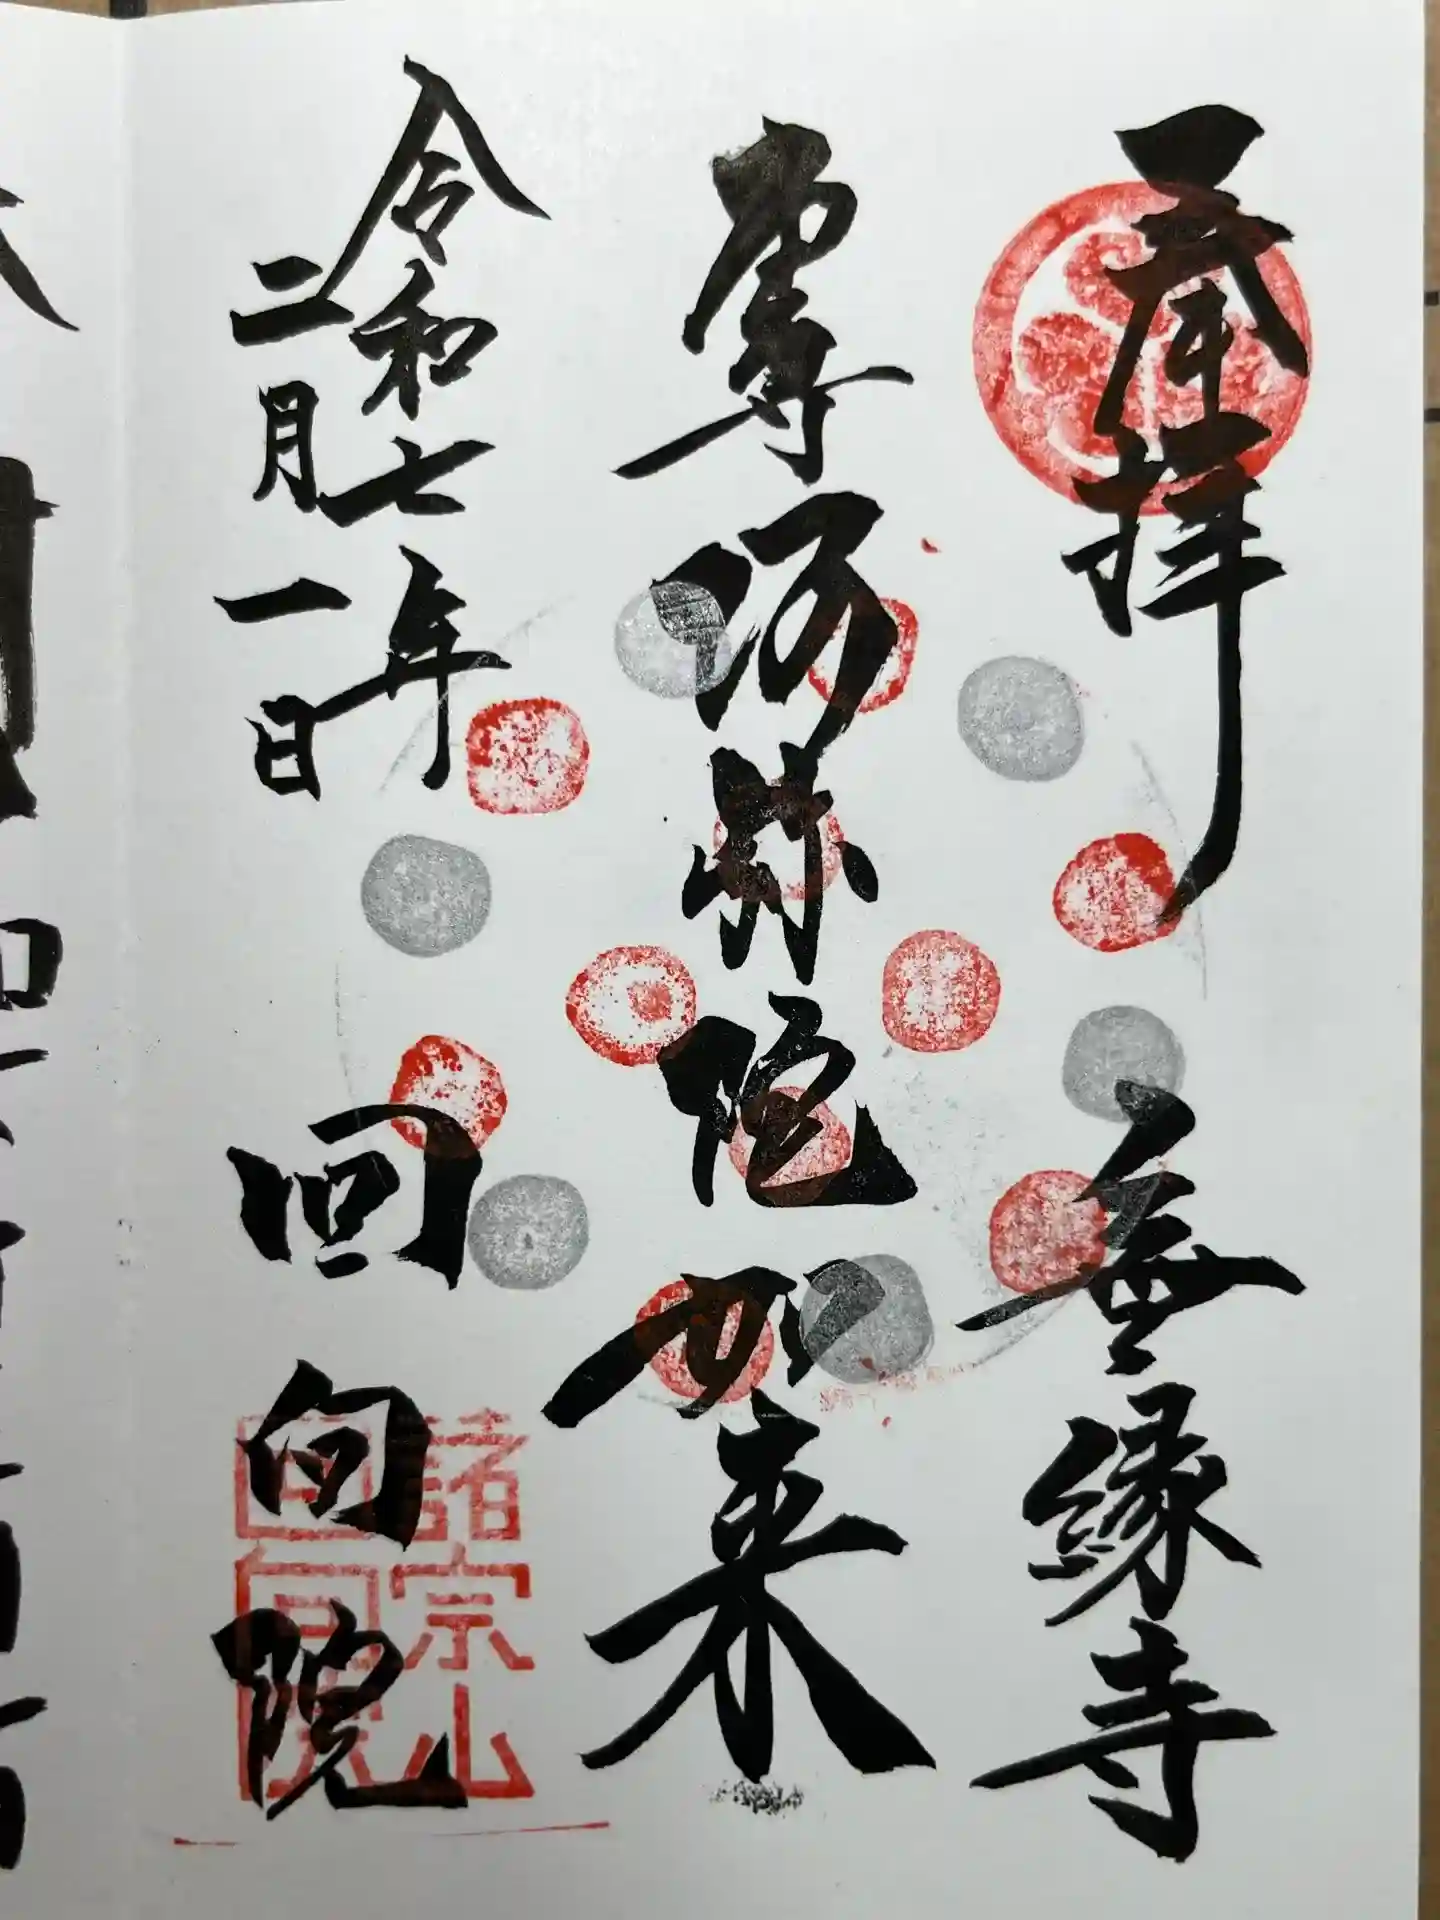 奉拝　無縁寺
尊阿弥陀如来
令和七年
二月一日
回向院
諸宗山
回向院